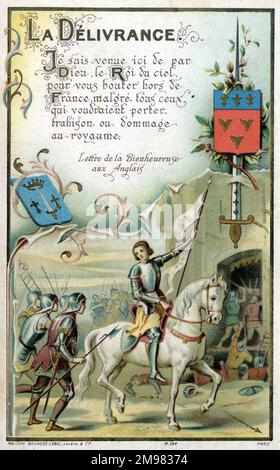 La Délivrance.
Je suis venue ici de par
Dieu, le Roi du ciel,
pour vous bouter hors de
France, malgré tous ceux
qui voudraient porter,
trahison ou dommage
au royaume;
Lettre de la Bienheureuse
aux Anglais
MAISON BOUASSE-LEBEL, Lecène & Cie
M. 194
PARIS
alamy
Image ID: 2M98374
www.alamy.com